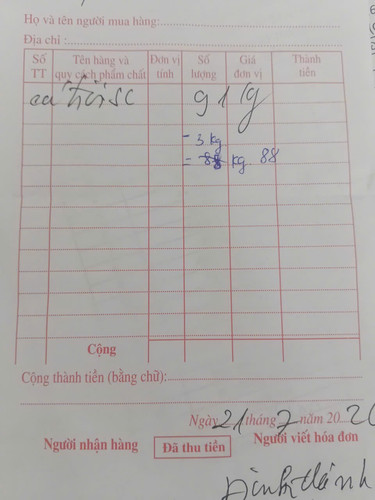 Họ và tên người mua hàng:
Địa chỉ :
Số TT Tên hàng và quy cách phẩm chất Đơn vị tính Số lượng Giá đơn vị Thành tiền
91 kg
- 3 kg
= kg 88
Cộng
Cộng thành tiền (bằng chữ):
Ngày 21 tháng 7 năm 2020
Người nhận hàng Đã thu tiền Người viết hóa đơn